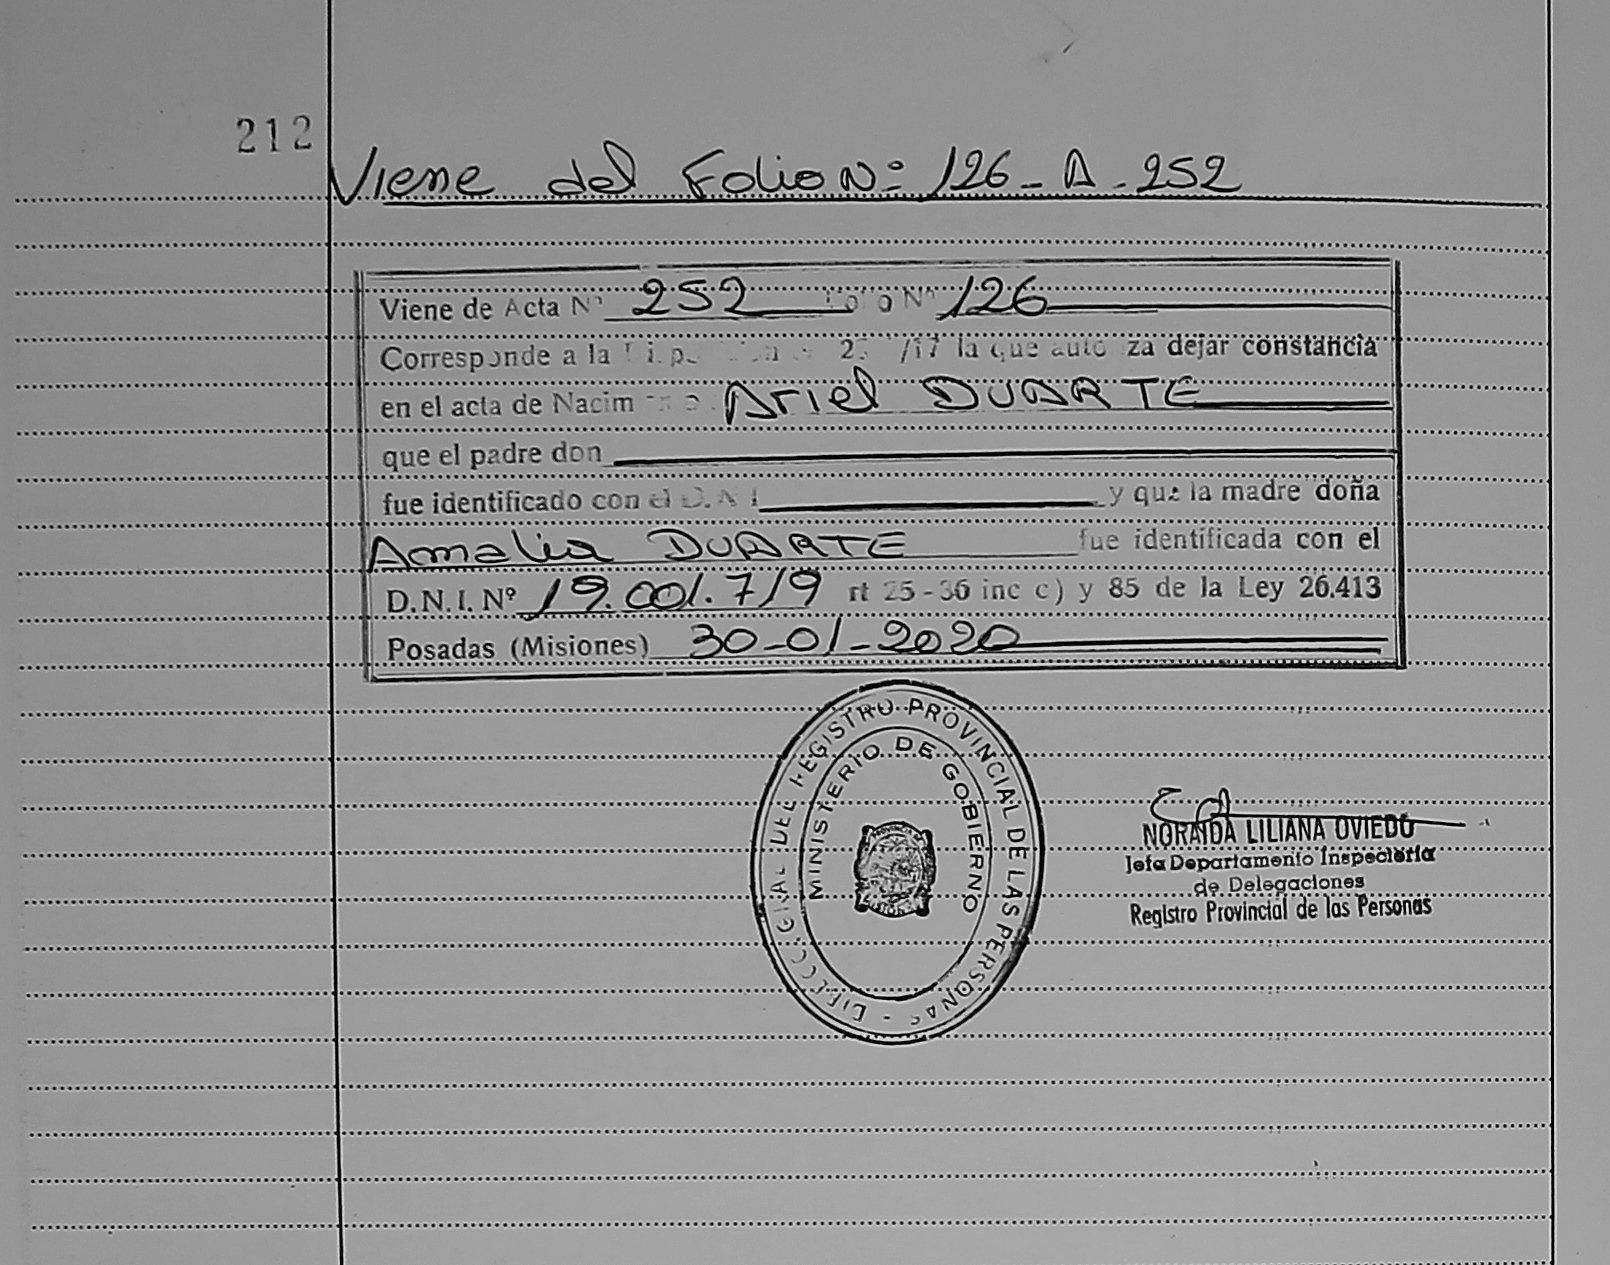 212
Viene del Folio Nº 126 - A - 252
Viene de Acta Nº 252 Nº 126
Corresponde a la /17 la que autoriza dejar constancia
en el acta de Nacim Ariel DUARTE
que el padre don
fue identificado con el D.N.I y que la madre doña
Amalia DUARTE fue identificada con el
D.N.I. Nº 19.001.719 rt 25 - 36 inc c) y 85 de la Ley 26.413
Posadas (Misiones) 30-01-2020
REGISTRO PROVINCIAL DE LAS PERSONAS
MINISTERIO DE GOBIERNO
NORAIDA LILIANA OVIEDO
Jefa Departamento Inspectoria
de Delegaciones
Registro Provincial de las Personas